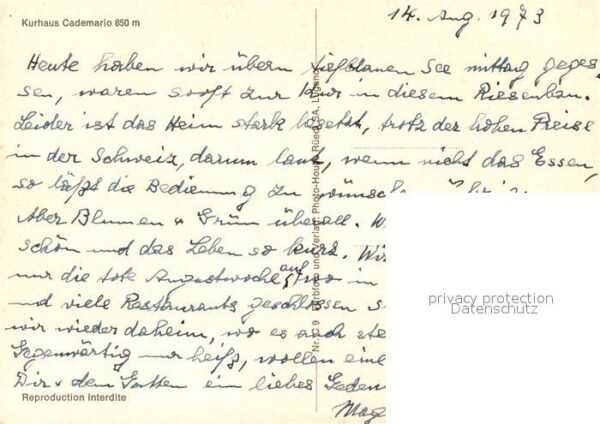 Kurhaus Cademario 850 m
14. Aug. 1973
Heute haben wir übern tiefblauen See mittag geges-
sen, waren so oft zur Kur in diesem Riesenbau.
Leider ist das Heim stark besetzt, trotz der hohen Preise
in der Schweiz, darum laut, wenn nicht das Essen,
so läßt die Bedienung zu wünschen übrig.
Aber Blumen & Grün überall.
schön und das Leben so kurz. Wir
nur die tote Augustwoche auf, wo in
und viele Restaurants geschlossen s
wir wieder daheim, wo es auch
Gegenwärtig nur heiß, wollen
Dir & dem Gatten ein liebes Geden
Reproduction Interdite
Nr. C 9 Farbfoto und Verlag: Photo-House Rüedi SA, Lugano
privacy protection
Datenschutz